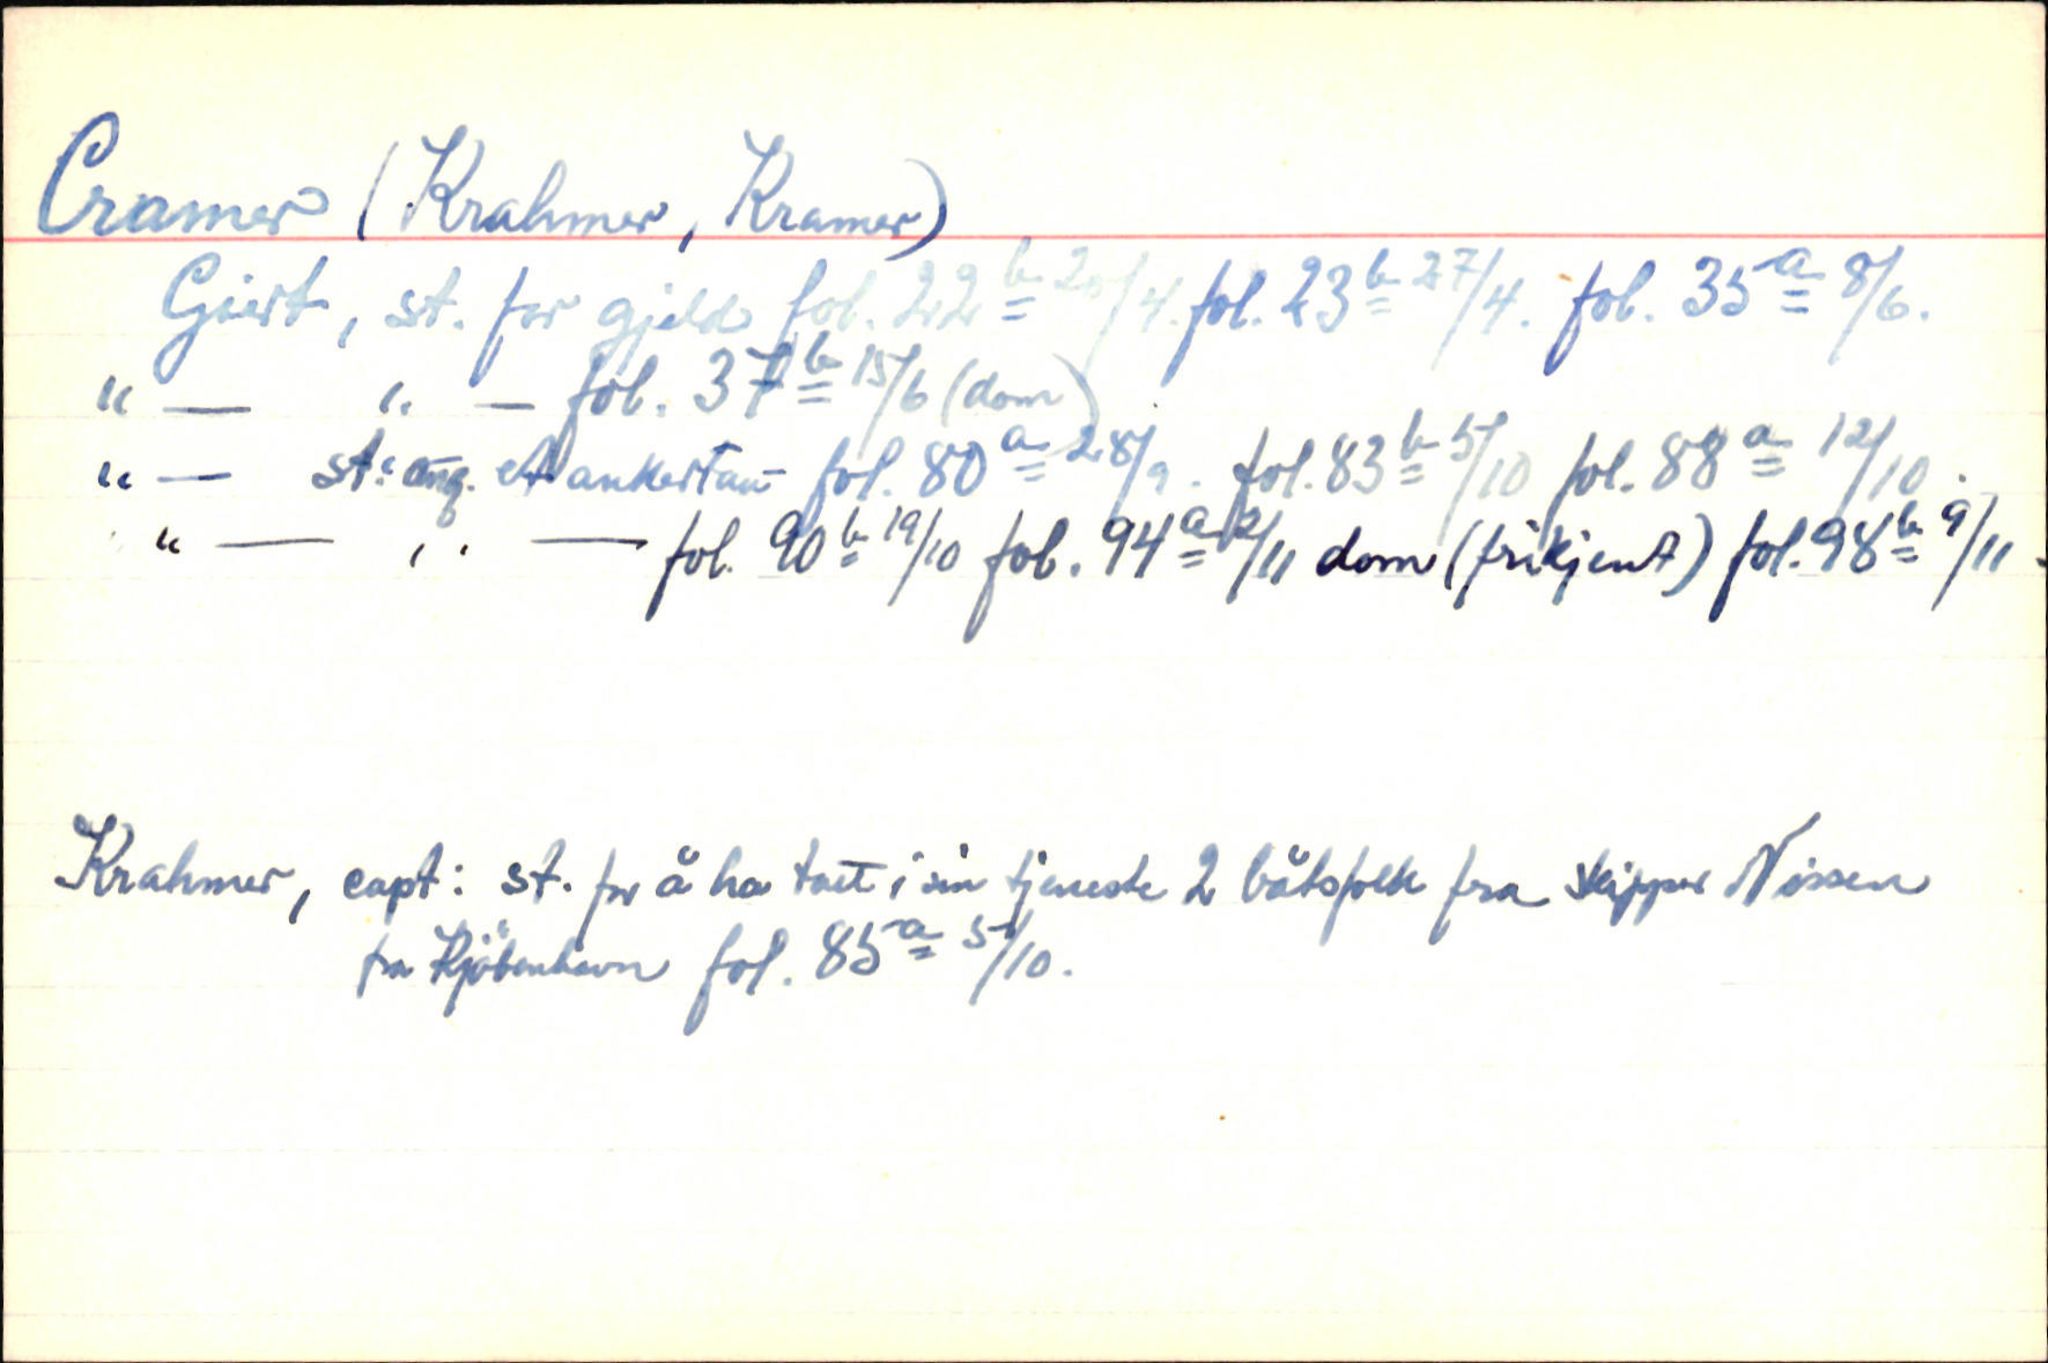 Cramer (Krahmer, Kramer)
Giert, st. for gjeld fol. 22 b 20/4. fol. 23 b 27/4. fol. 35 a 8/6.
" — " — fol. 37 b 15/6 (dom)
" — st: ang. et ankertau fol. 80 a 28/9. fol. 83 b 5/10 fol. 88 a 12/10.
" — " — fol. 90 b 19/10 fol. 94 a 2/11 dom (frikjent) fol. 98 b 9/11.
Krahmer, capt: st. for å ha tatt i sin tjeneste 2 båtsfolk fra skipper Nissen
fra Kjöbenhavn fol. 85 a 5/10.